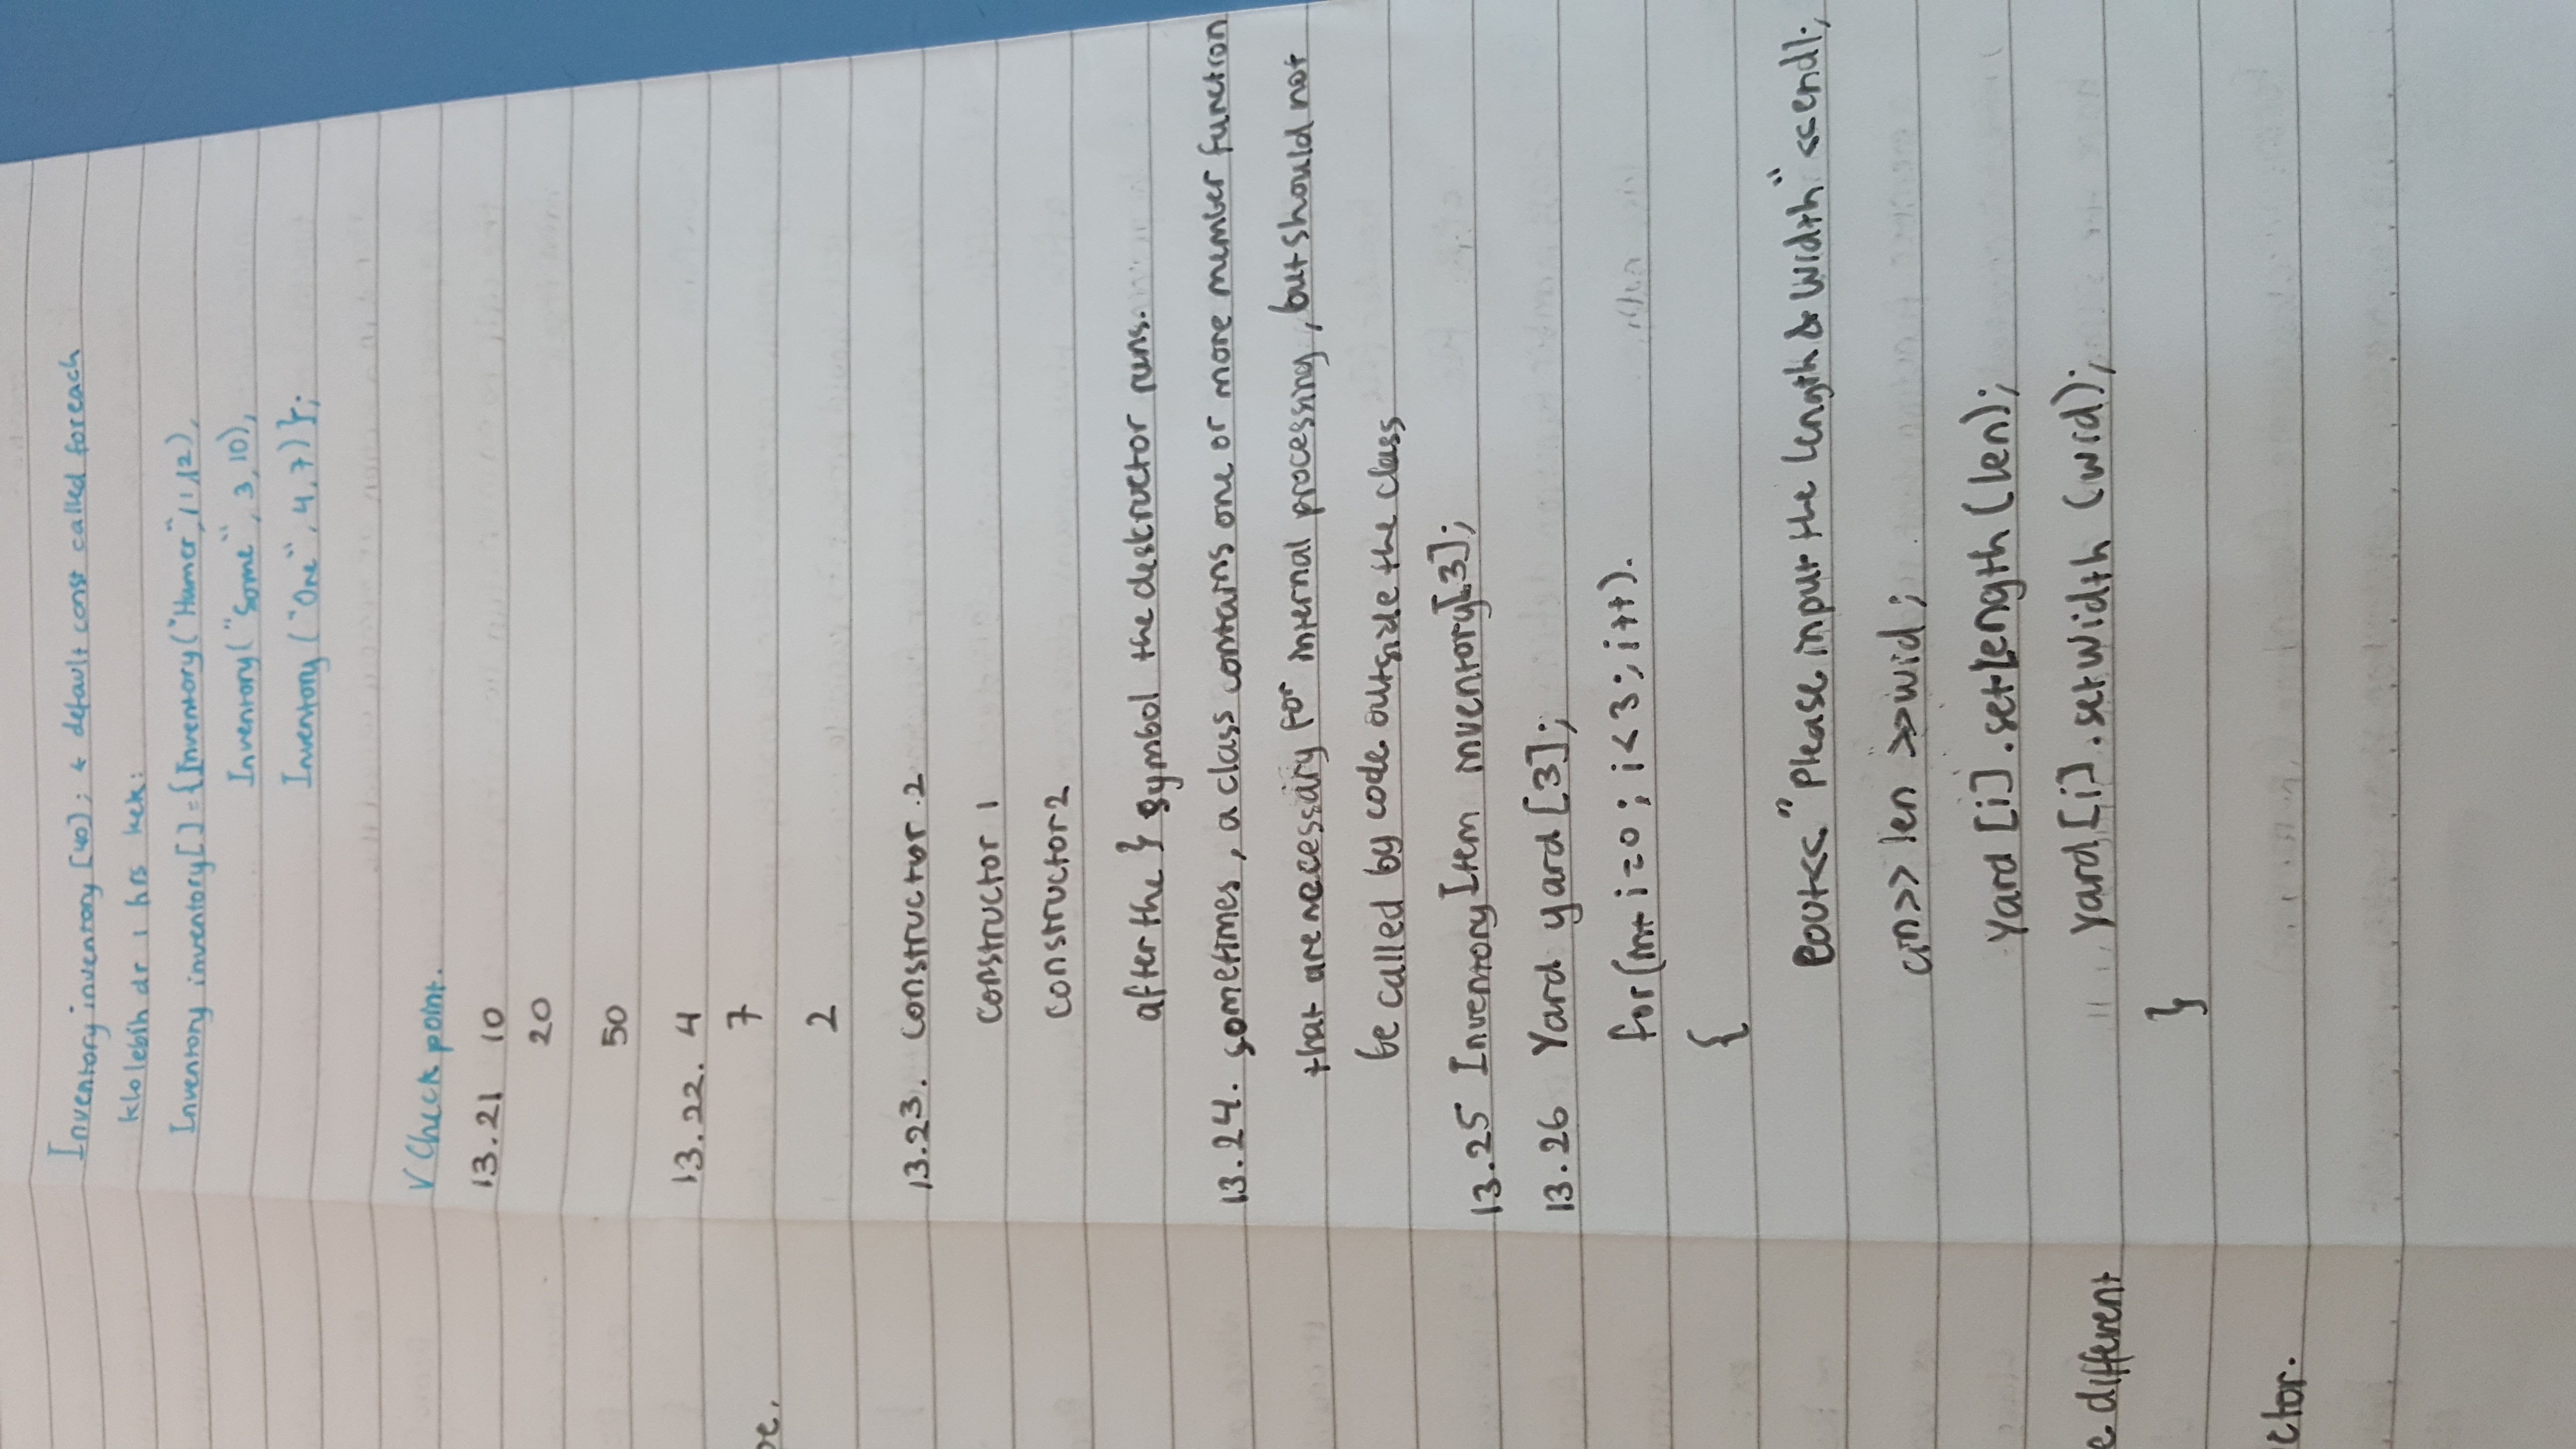 Inventory inventory [40]; ← default const called foreach
klo lebih dr 1 hrs kek:
Inventory inventory[] = {Inventory("Hamer", 1,12),
Inventory("Some", 3,10),
Inventory ("One", 4,7)};
√ Check point.
13.21 10
20
50
13.22. 4
7
2
13.23. constructor 2
constructor 1
constructor 2
after the } symbol the desktructor runs.
13.24. sometimes, a class contains one or more member function
that are necessary for internal processing, but should not
be called by code outside the class
13.25 InventoryItem inventory[3];
13.26 Yard yard [3];
for(int i=0; i<3; i++).
{
cout<< "Please input the length & width" <<endl;
cin>> len >>wid;
yard [i].setLength (len);
yard [i].setWidth (wid);
}
pe.
e different
ctor.